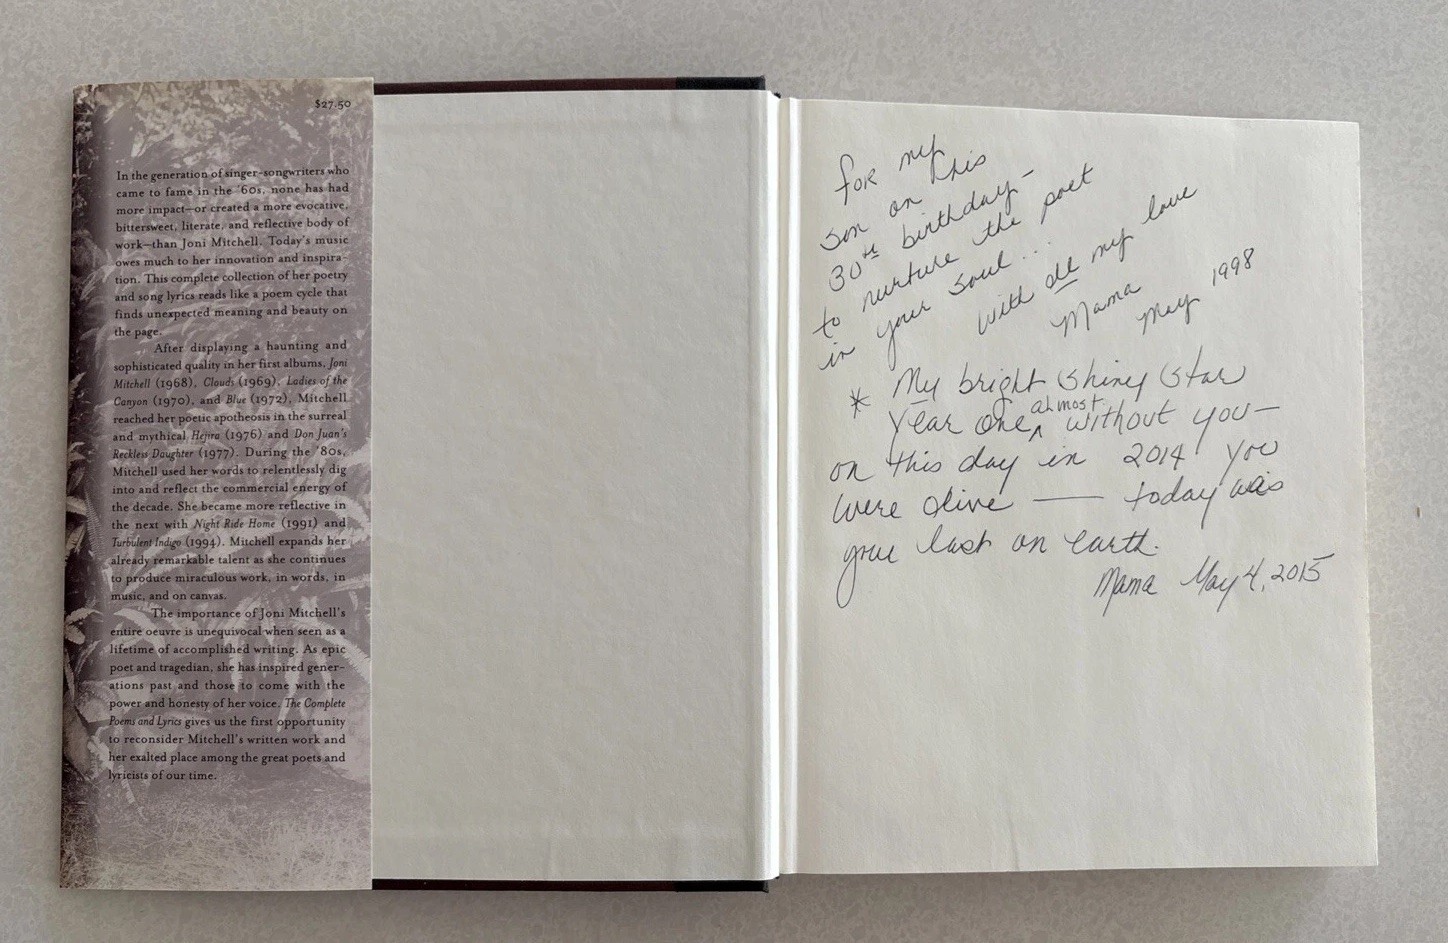 $27.50
In the generation of singer-songwriters who
came to fame in the '60s, none has had
more impact—or created a more evocative,
bittersweet, literate, and reflective body of
work—than Joni Mitchell. Today's music
owes much to her innovation and inspira-
tion. This complete collection of her poetry
and song lyrics reads like a poem cycle that
finds unexpected meaning and beauty on
the page.
After displaying a haunting and
sophisticated quality in her first albums, Joni
Mitchell (1968), Clouds (1969), Ladies of the
Canyon (1970), and Blue (1972), Mitchell
reached her poetic apotheosis in the surreal
and mythical Hejira (1976) and Don Juan's
Reckless Daughter (1977). During the '80s,
Mitchell used her words to relentlessly dig
into and reflect the commercial energy of
the decade. She became more reflective in
the next with Night Ride Home (1991) and
Turbulent Indigo (1994). Mitchell expands her
already remarkable talent as she continues
to produce miraculous work, in words, in
music, and on canvas.
The importance of Joni Mitchell's
entire oeuvre is unequivocal when seen as a
lifetime of accomplished writing. As epic
poet and tragedian, she has inspired gener-
ations past and those to come with the
power and honesty of her voice. The Complete
Poems and Lyrics gives us the first opportunity
to reconsider Mitchell's written work and
her exalted place among the great poets and
lyricists of our time.
for my
son on this
30th birthday—
to nurture the poet
in your soul...
with all my love
Mama
May 1998
* My bright shiny star
Year one almost without you—
on this day in 2014 you
were alive — today was
your last on earth.
Mama May 4, 2015